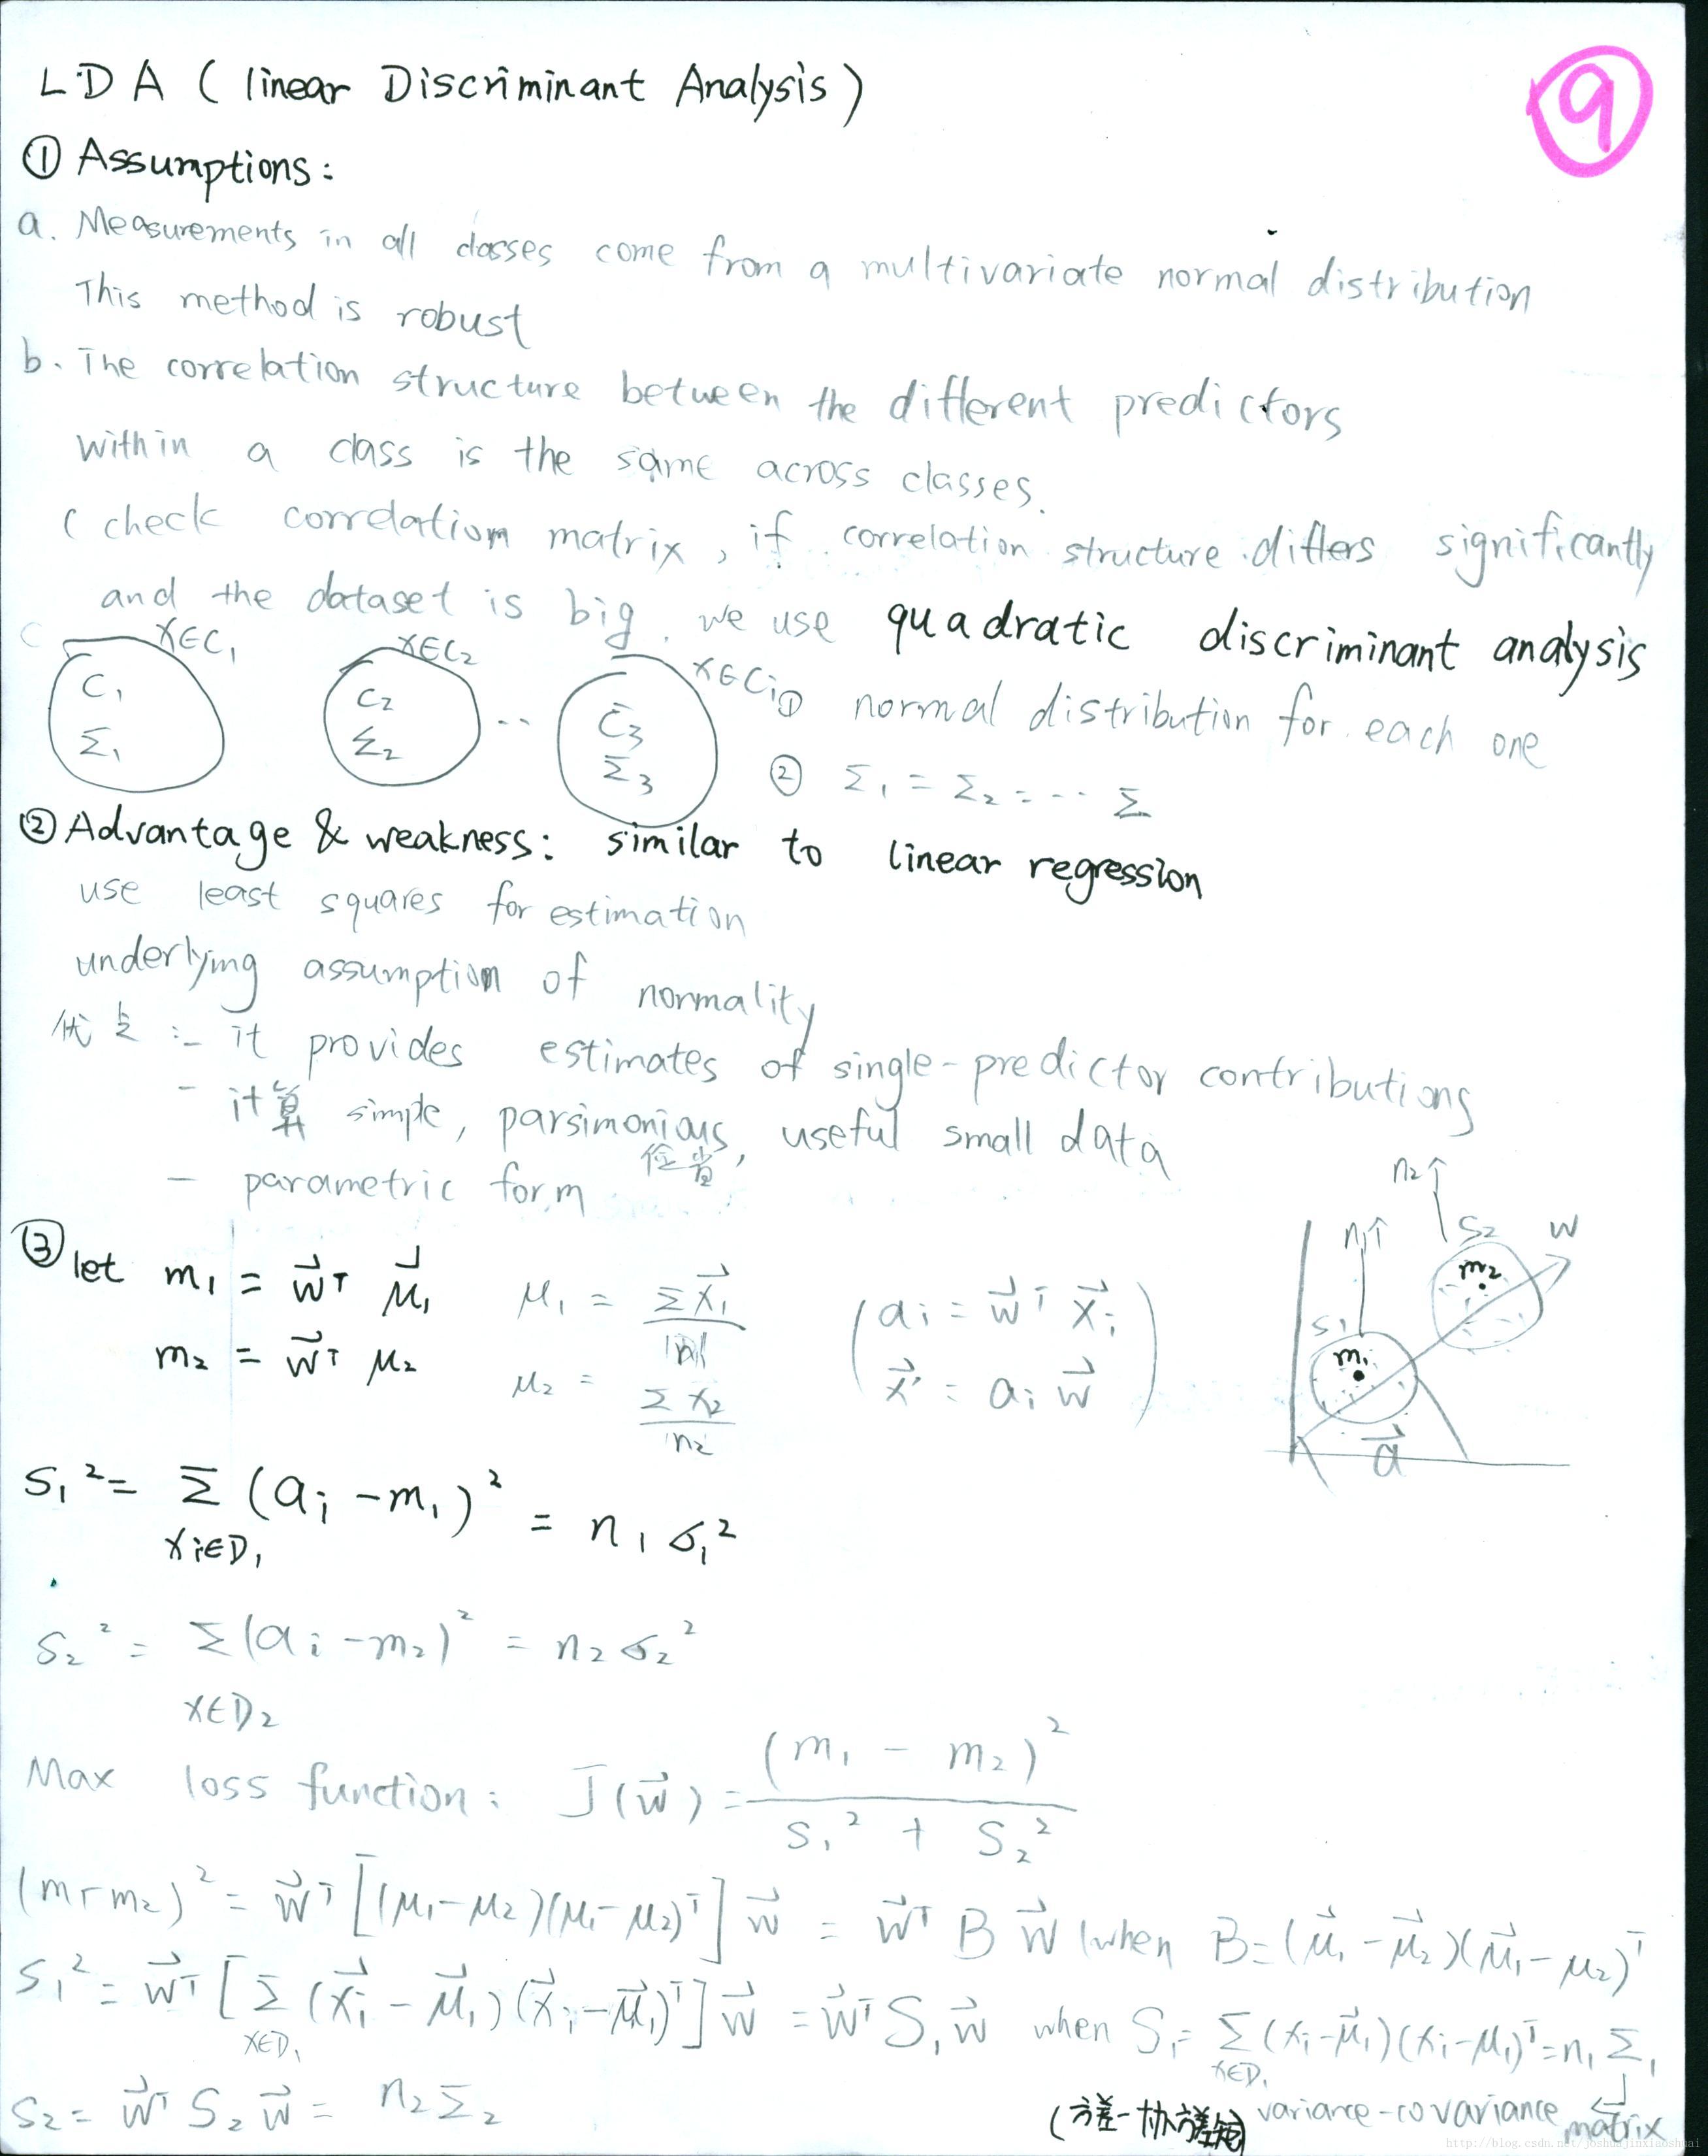 LDA ( linear Discriminant Analysis )
9
① Assumptions :
a. Measurements in all classes come from a multivariate normal distribution
This method is robust
b. The correlation structure between the different predictors
within a class is the same across classes.
( check correlation matrix , if correlation structure differs significantly
and the dataset is big , we use quadratic discriminant analysis
X∈C₁ X∈C₂ X∈Cᵢ
C₁ C₂ ·· C₃ ① normal distribution for each one
Σ₁ Σ₂ Σ₃ ② Σ₁ = Σ₂ = ··· Σ
② Advantage & weakness : similar to linear regression
use least squares for estimation
underlying assumption of normality
优点 : - it provides estimates of single-predictor contributions
- 计算 simple, parsimonious, useful small data
俭省
- parametric form
③ let m₁ = w⃗ᵀ μ⃗₁ μ₁ = Σx⃗₁ / n₁ ( aᵢ = w⃗ᵀ x⃗ᵢ
m₂ = w⃗ᵀ μ₂ μ₂ = Σx₂ / n₂ x⃗' = aᵢ w⃗ )
n₂↑ S₂ w
n₁↑ m₂
S₁ m₁
a⃗
S₁² = Σ (aᵢ - m₁)² = n₁σ₁²
xᵢ∈D₁
S₂² = Σ(aᵢ - m₂)² = n₂σ₂²
x∈D₂
Max loss function : J(w⃗) = (m₁ - m₂)² / S₁² + S₂²
(m₁-m₂)² = w⃗ᵀ [(μ₁-μ₂)(μ₁-μ₂)ᵀ] w⃗ = w⃗ᵀ B w⃗ (when B=(μ⃗₁-μ⃗₂)(μ⃗₁-μ₂)ᵀ
S₁² = w⃗ᵀ [ Σ (x⃗ᵢ - μ⃗₁)(x⃗ᵢ - μ⃗₁)ᵀ] w⃗ = w⃗ᵀ S₁ w⃗ when S₁ = Σ(xᵢ-μ⃗₁)(xᵢ-μ₁)ᵀ = n₁Σ₁
x∈D₁ x∈D₁
S₂ = w⃗ᵀ S₂ w⃗ = n₂Σ₂
(方差-协方差矩) variance-covariance matrix
http://blog.csdn.net/joshuajinxiaoshuai